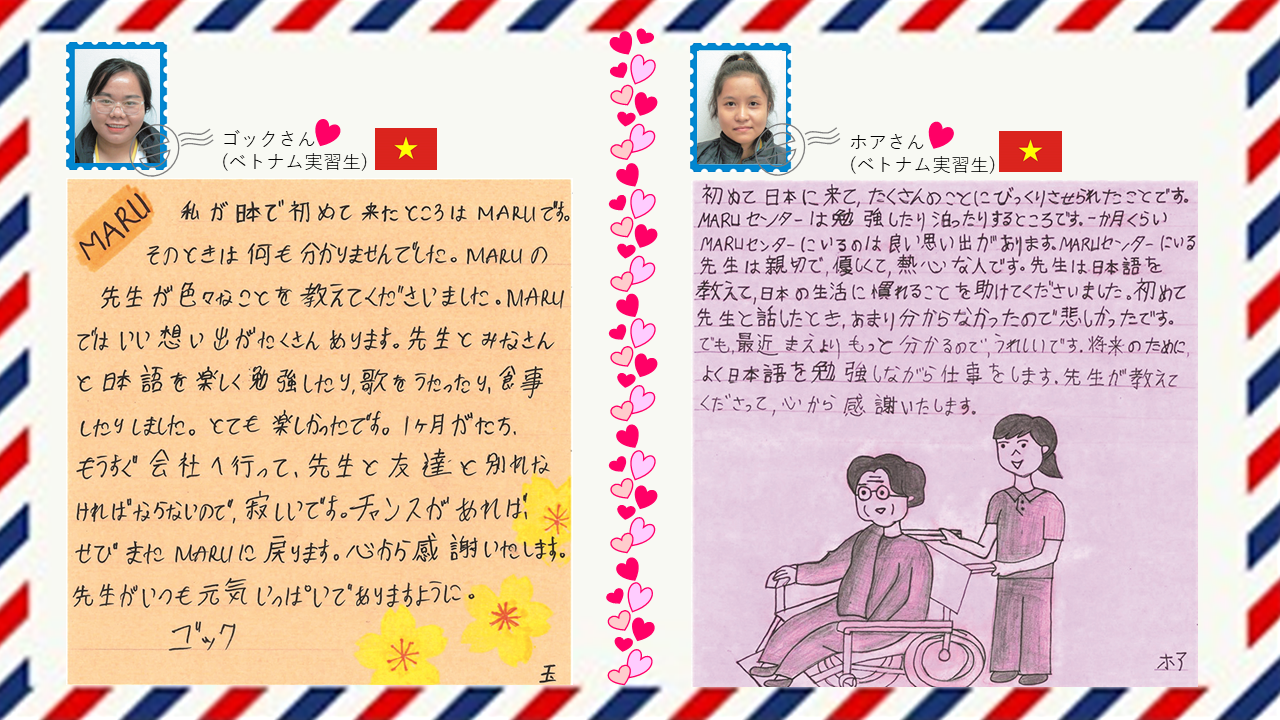 ゴックさん
(ベトナム実習生)
MARU
私が日本で初めて来たところはMARUです。
そのときは何も分かりませんでした。MARUの
先生が色々なことを教えてくださいました。MARU
ではいい想い出がたくさんあります。先生とみなさん
と日本語を楽しく勉強したり,歌をうたったり,食事
したりしました。とても楽しかったです。1ヶ月がたち、
もうすぐ会社へ行って、先生と友達と別れな
ければならないので,寂しいです。チャンスがあれば、
ぜひまたMARUに戻ります。心から感謝いたします。
先生がいつも元気いっぱいでありますように。
ゴック
玉
ホアさん
(ベトナム実習生)
初めて日本に来て,たくさんのことにびっくりさせられたことです。
MARUセンターは勉強したり泊ったりするところです。一か月くらい
MARUセンターにいるのは良い思い出があります。MARUセンターにいる
先生は親切で,優しくて,熱心な人です。先生は日本語を
教えて,日本の生活に慣れることを助けてくださいました。初めて
先生と話したとき,あまり分からなかったので悲しかったです。
でも,最近まえよりもっと分かるので,うれしいです。将来のために,
よく日本語を勉強しながら仕事をします。先生が教えて
くださって,心から感謝いたします。
ホア